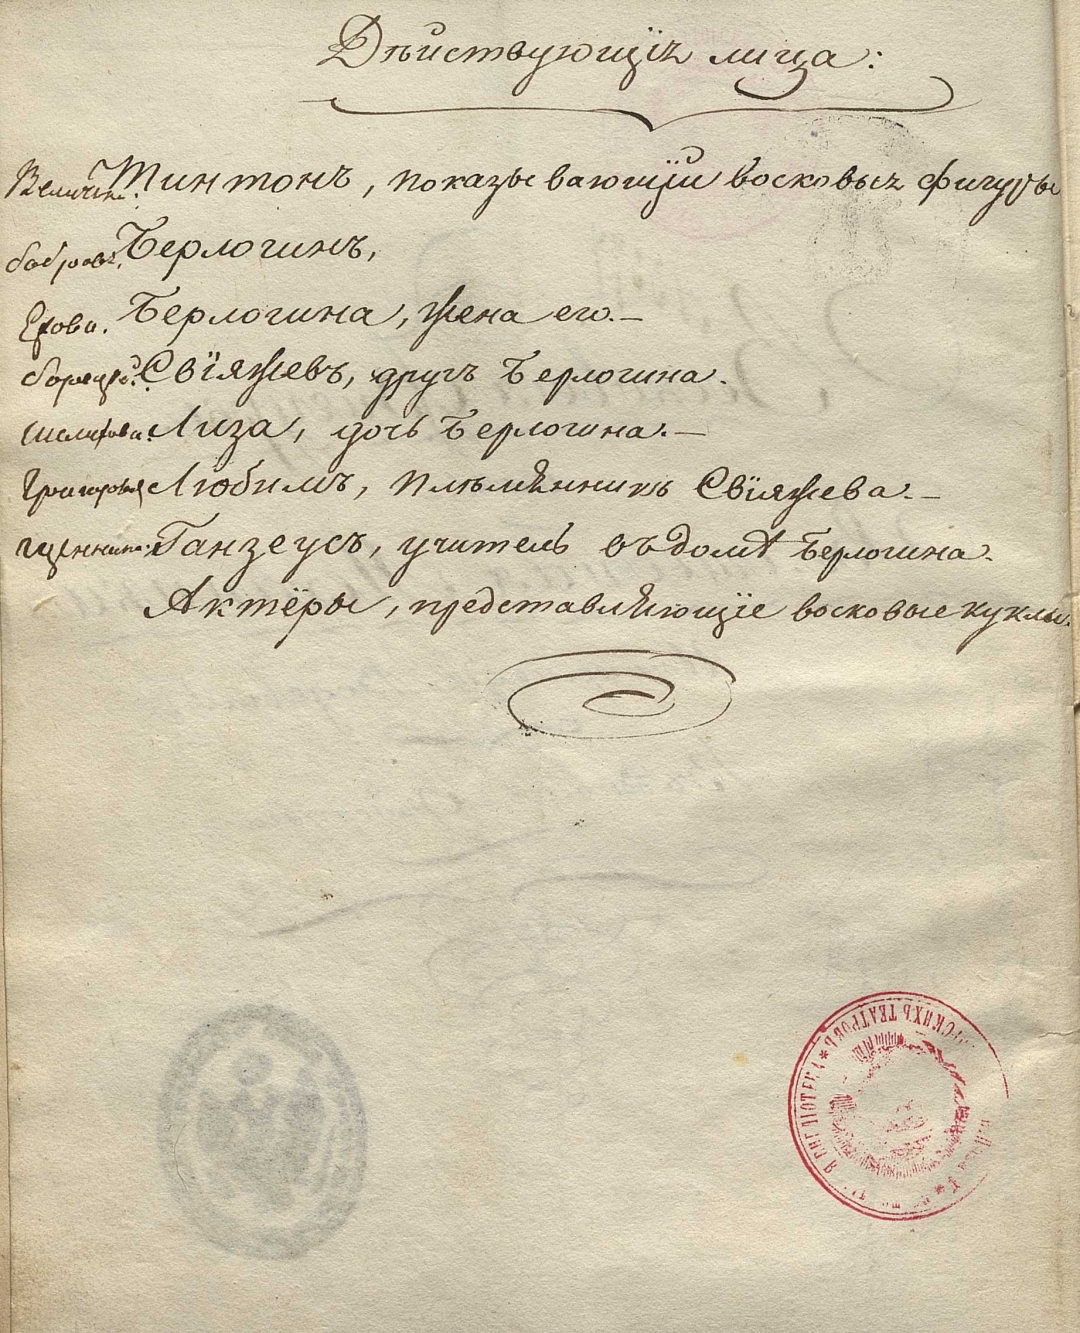 Дѣйствующіе лица:
Величк. Тинтонъ, показывающій восковые фигуры
бобровъ. Берлогинъ,
Ежова. Берлогина, жена его.—
борецкой. Свіяжевъ, другъ Берлогина.
Шелихова. Лиза, дочь Берлогина.—
Григорьев Любимъ, племянникъ Свіяжева.—
Ганзеусъ, учитель въ домѣ Берлогина.
Актёры, представляющіе восковые куклы.
БИБЛІОТЕКА * ТЕАТРОВЪ *